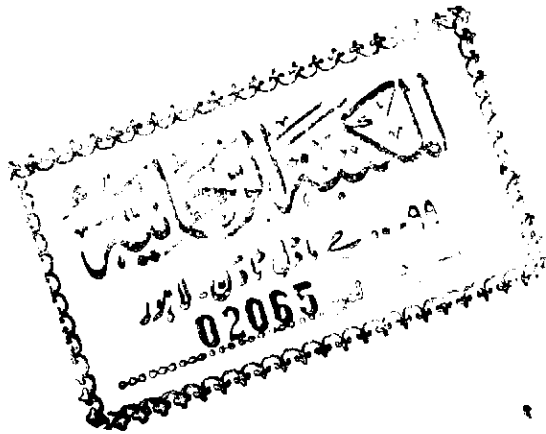 المکتبۃ الرحمانیہ
۹۹ ..... جے ماڈل ٹاؤن۔ لاہور
02065